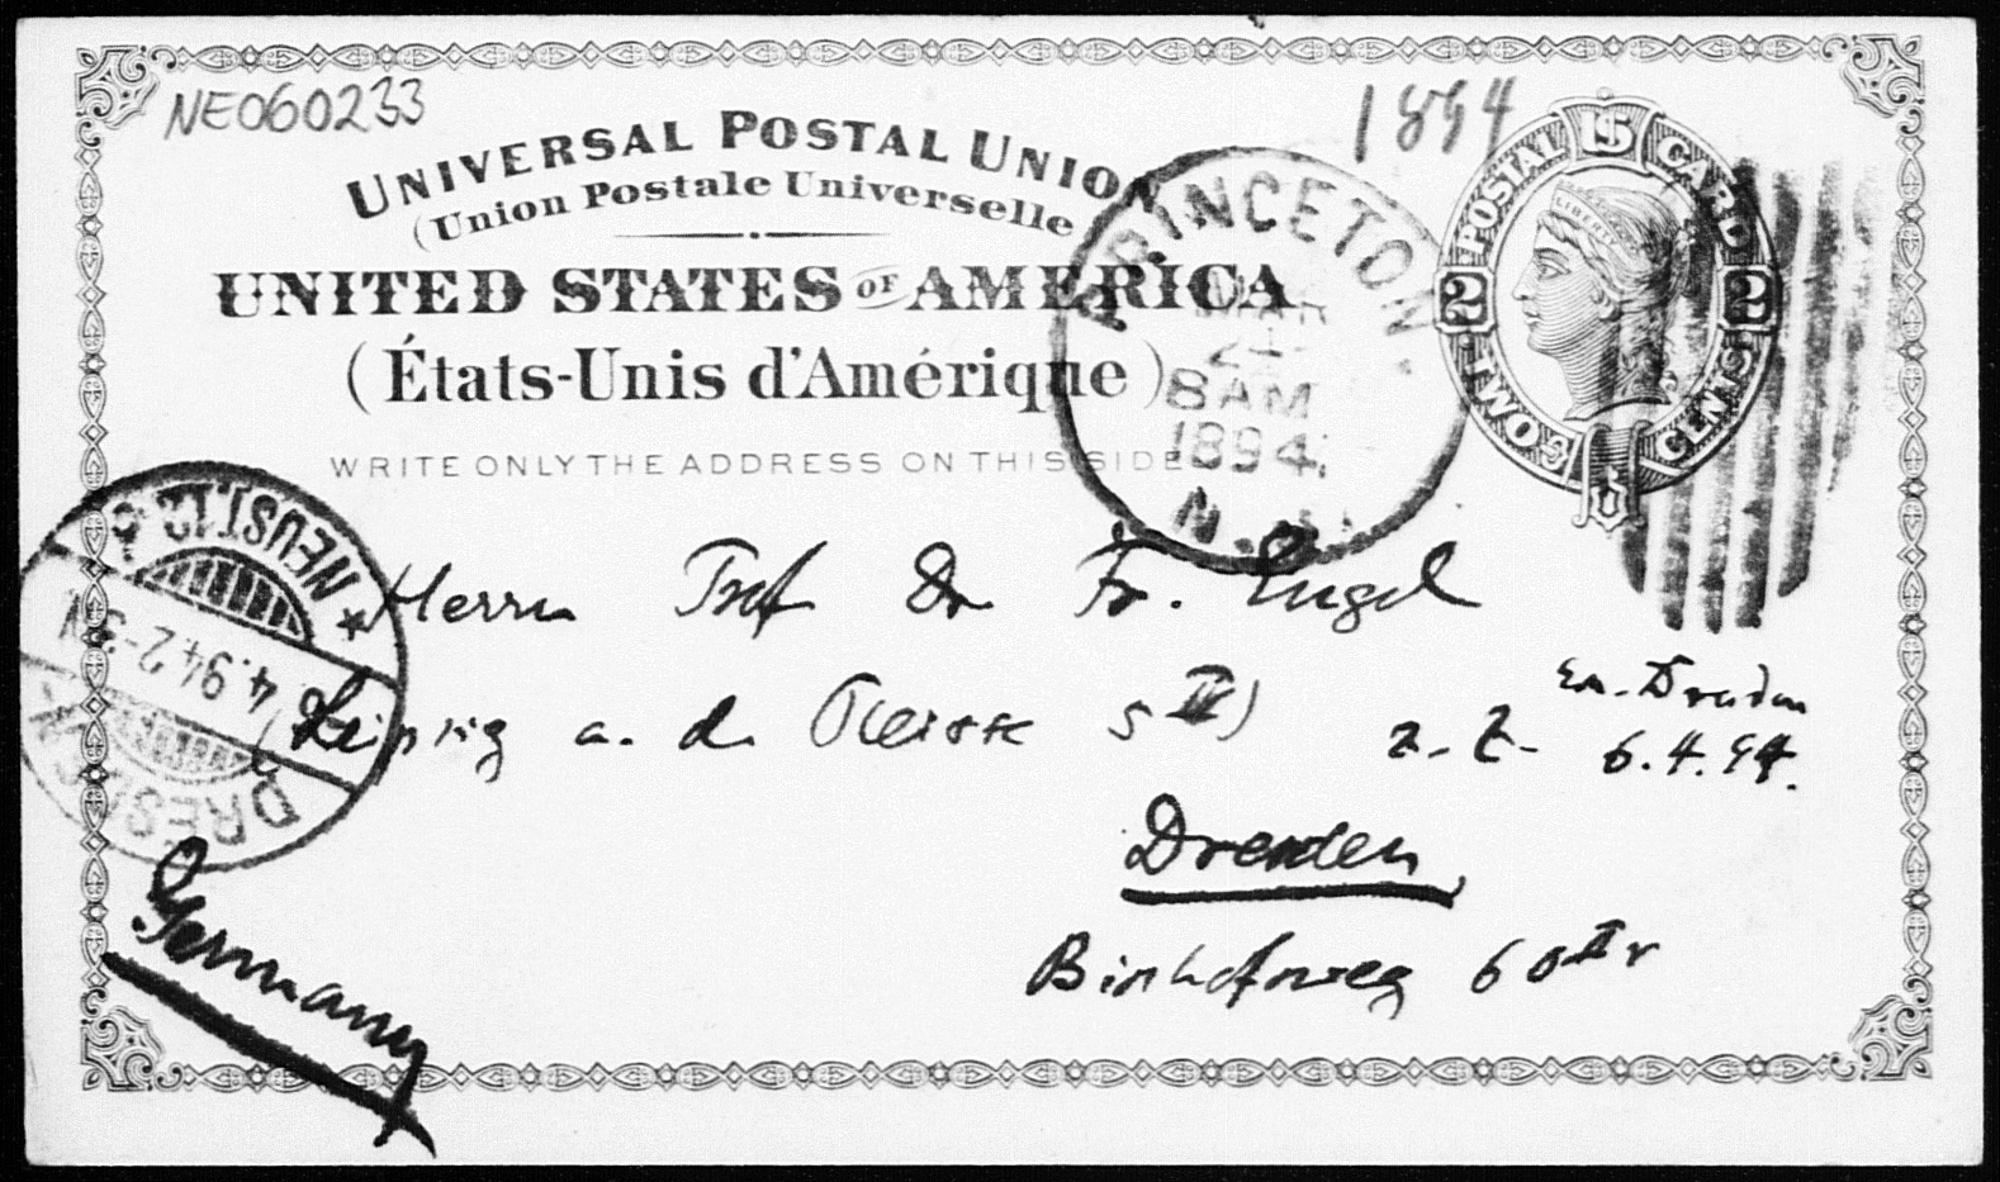 NE060233
1894
UNIVERSAL POSTAL UNION
(Union Postale Universelle
UNITED STATES OF AMERICA
(États-Unis d'Amérique)
WRITE ONLY THE ADDRESS ON THIS SIDE
US
POSTAL CARD
LIBERTY
2 2
TWO CENTS
PRINCETON
MAR
8 AM
1894
N.J.
DRESDEN
4.94.2-3N
* NEUST.12
Herrn Prof Dr Fr. Engel
(Leipzig a. d. Pleisse 5 II)
Dresden
z. Z. 6.4.94.
Dresden
Bischofsweg 60 II r
Germany